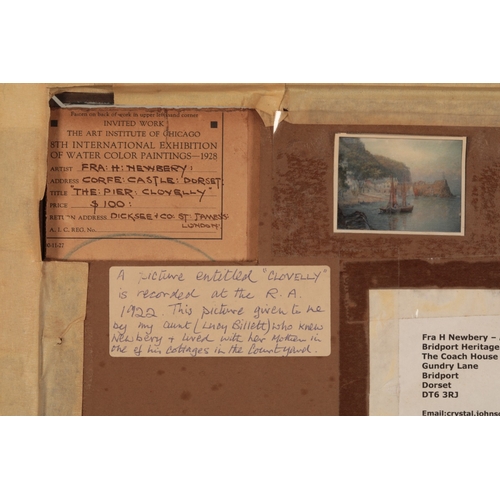 Fasten on back of work in upper left-hand corner
INVITED WORK
THE ART INSTITUTE OF CHICAGO
8TH INTERNATIONAL EXHIBITION
OF WATER COLOR PAINTINGS—1928
ARTIST FRA: H: NEWBERY:
ADDRESS CORFE: CASTLE: DORSET:
TITLE "THE: PIER: CLOVELLY"
PRICE $100:
RETURN ADDRESS: DICKSEE & CO: ST: JAMES'S:
LONDON.
A. I. C. REG. No.
A picture entitled "CLOVELLY"
is recorded at the R.A.
1922. This picture given to me
by my aunt (Lucy Billett) who knew
Newbery & lived with her Mother in
one of his cottages in the Courtyard.
Fra H Newbery –
Bridport Heritage
The Coach House
Gundry Lane
Bridport
Dorset
DT6 3RJ
Email:crystal.johns